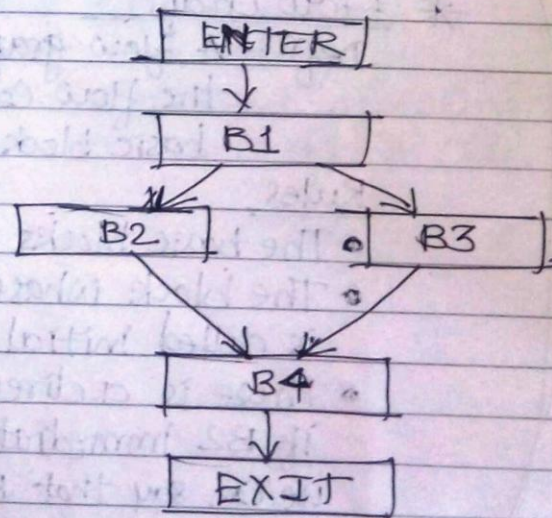 ENTER
B1
B2 B3
B4
EXIT